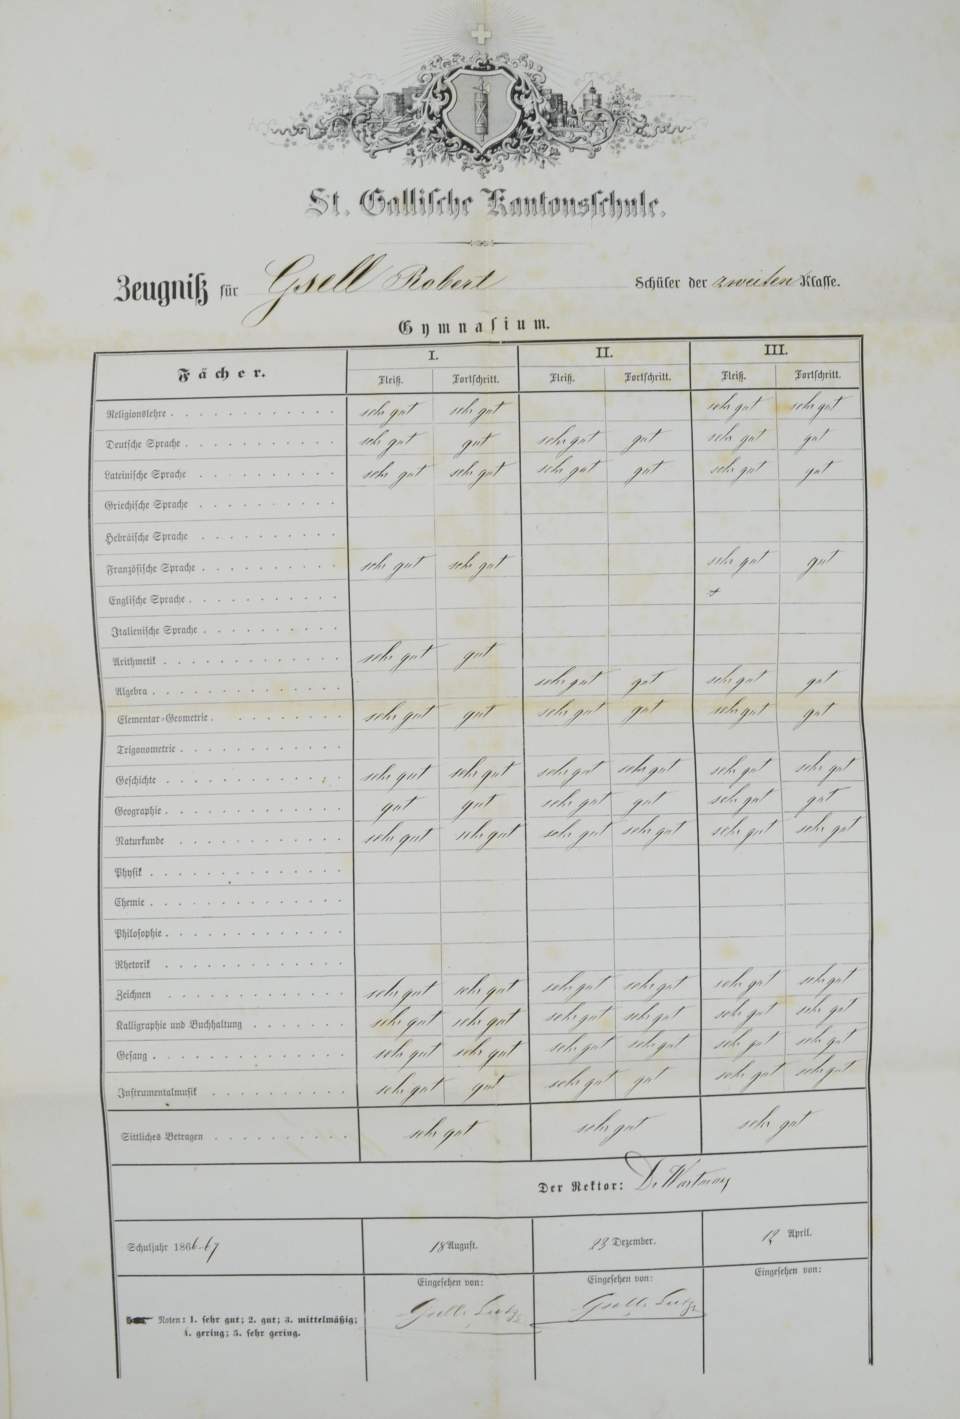 St. Gallische Kantonsschule.
Zeugniß für Gsell Robert Schüler der zweiten Klasse.
Gymnasium.
Fächer. I. II. III.
Fleiß. Fortschritt. Fleiß. Fortschritt. Fleiß. Fortschritt.
Religionslehre sehr gut sehr gut sehr gut sehr gut
Deutsche Sprache sehr gut gut sehr gut gut sehr gut gut
Lateinische Sprache sehr gut sehr gut sehr gut gut sehr gut gut
Griechische Sprache
Hebräische Sprache
Französische Sprache sehr gut sehr gut sehr gut gut
Englische Sprache
Italienische Sprache
Arithmetik sehr gut gut
Algebra sehr gut gut sehr gut gut
Elementar-Geometrie sehr gut gut sehr gut gut sehr gut gut
Trigonometrie
Geschichte sehr gut sehr gut sehr gut sehr gut sehr gut sehr gut
Geographie gut gut sehr gut gut sehr gut gut
Naturkunde sehr gut sehr gut sehr gut sehr gut sehr gut sehr gut
Physik
Chemie
Philosophie
Rhetorik
Zeichnen sehr gut sehr gut sehr gut sehr gut sehr gut sehr gut
Kalligraphie und Buchhaltung sehr gut sehr gut sehr gut sehr gut sehr gut sehr gut
Gesang sehr gut sehr gut sehr gut sehr gut sehr gut sehr gut
Instrumentalmusik sehr gut gut sehr gut gut sehr gut sehr gut
Sittliches Betragen sehr gut sehr gut sehr gut
Der Rektor: Dr Wartmann
Schuljahr 1866-67 18 August. 23 Dezember. 12 April.
Eingesehen von: Eingesehen von: Eingesehen von:
Gsell-Lutz Gsell-Lutz
Noten: 1. sehr gut; 2. gut; 3. mittelmäßig;
4. gering; 5. sehr gering.